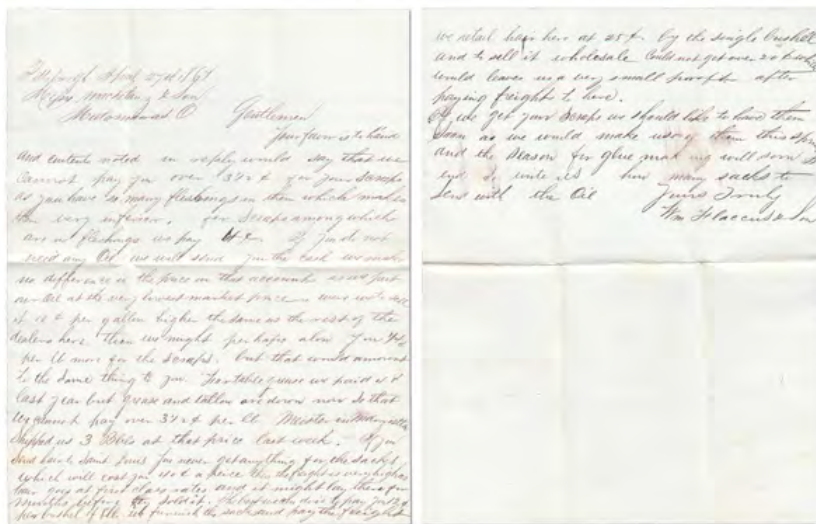 Pittsburgh April 27th 1869
Messrs
O. Gentlemen
Your favor is to hand
and contents noted in reply would say that we
cannot pay you over 3 1/2 ¢ for your scraps
as you have so many fleshings in them which makes
them very inferior. for Scraps among which
are no fleshings we pay 4 ¢. If you do not
need any Oil we will send you the cash we make
no difference in the price on that account as we put
our Oil at the very lowest market price
it ¢ per gallon higher the same as the rest of the
dealers here then we might perhaps alow you
per lb more for the scraps. but that would amount
to the same thing to you. For table grease we paid
last year but grease and tallow are down now so that
we cannot pay over 3 1/2 ¢ per lb
shipped us 3 Bbls at that price last week. If you
send hair to Saint Louis you never get anything for the sacks
which will cost you a piece the freight is very high as
hair goes at first class rates and it might lay there for
months before they sold it. The best we can do is to pay you
per bushel if we furnish the sacks and pay the freight
we retail hair here at 25 ¢ by the single bushell
and to sell it wholesale could not get over 20 ¢ which
would leave us a very small profit after
paying freight to here.
If we get your Scraps we should like to have them
soon as we would make use of them this
and the season for glue making will soon
end. So write us how many sacks to
send with the Oil Yours Truly
Wm Flaccus & Son